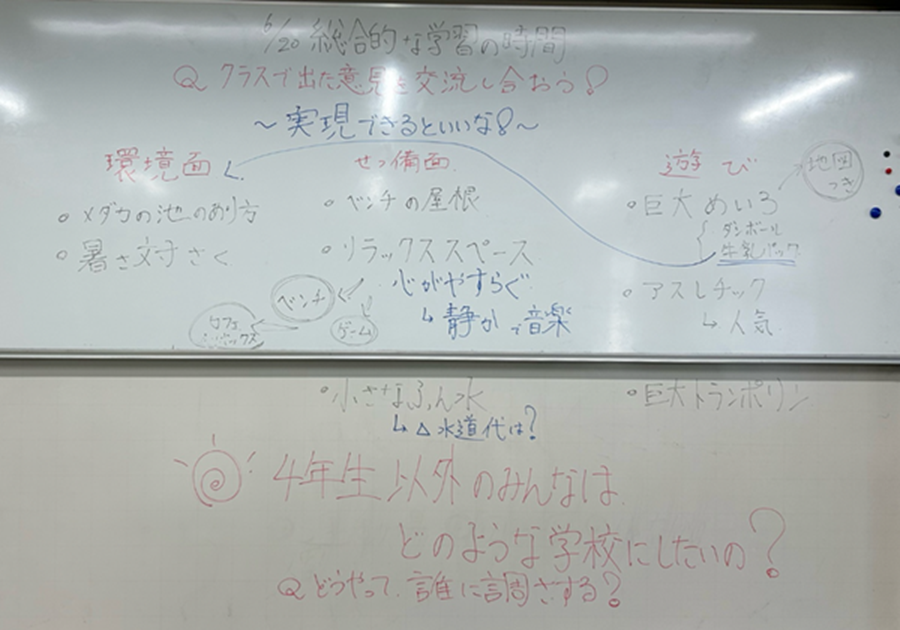 6/20 総合的な学習の時間
Q クラスで出た意見を交流し合おう!
～実現できるといいな!～
環境面
・メダカの池のあり方
・暑さ対さく
せつ備面
・ベンチの屋根
・リラックススペース
心がやすらぐ
↳ 静か 音楽
ベンチ
ゲーム
カフェ
・小さなふん水
↳ △ 水道代は?
遊び
・巨大めいろ
地図つき
ダンボール
牛乳パック
・アスレチック
↳ 人気
・巨大トランポリン
4年生以外のみんなは
どのような学校にしたいの?
Q どうやって、誰に調さする?